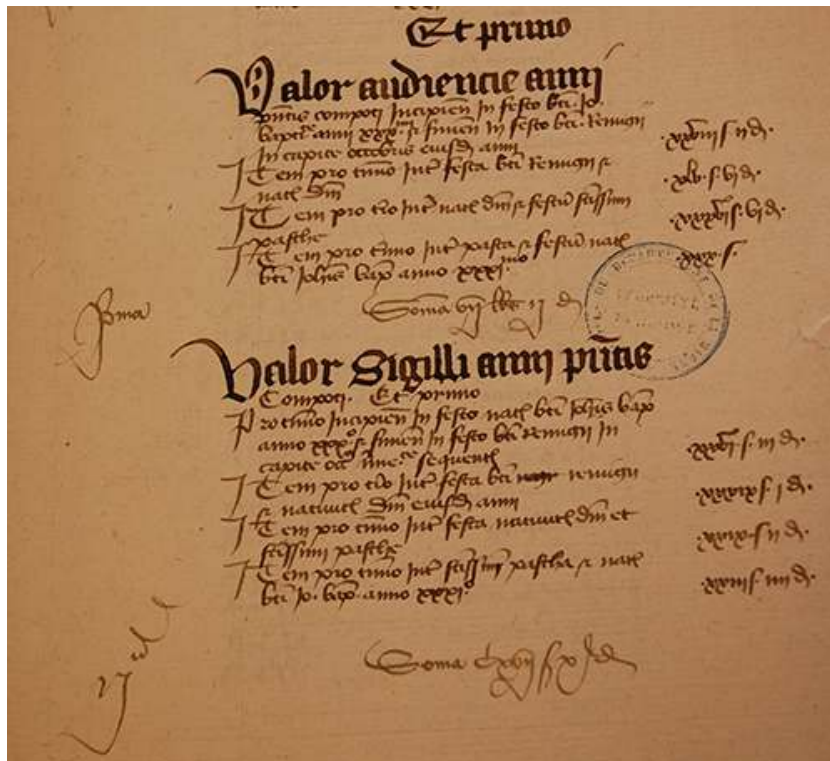 Et primo
Valor audiencie anni
pn̄tis compoti Incipien̄ In festo bt̄i Jo.
bapt̄e anni xxxmi & finien̄ In festo bt̄i Remigii
In capite octobris eiusd̄ anni xxviii s. ii d.
Item pro t̄mino Int̄ festa bt̄i Remigii &
nat̄l dn̄i xlv s. vi d.
Item pro t̄io Int̄ nat̄l dn̄i & festū s̄c̄issimi
pasche xxxvi s. vi d.
Item pro t̄mino Int̄ pasca & festū nat̄l
bt̄i Joh̄is bap̄ anno xxximo xxx s.
Som̄a vii ii d
pma
Valor Sigilli anni pn̄tis
Compoti. Et primo
Pro t̄mino Incipien̄ In festo nat̄l bt̄i Joh̄is bap̄
anno xxxo & finien̄ In festo bt̄i Remigii In
capite sequent̄ xxvi s. iii d.
Item pro t̄io Int̄ festa bt̄i Remigii
& nativit̄ Dn̄i eiusd̄ anni xxxix s. i d.
Item pro t̄mino Int̄ festa nativit̄ dn̄i et
s̄c̄issimi pasche xxix s. ii d.
Item pro t̄mino Int̄ s̄c̄issimi pascha & nat̄l
bt̄i Jo. bap̄. anno xxxio xxiii s. iiii d.
Som̄a cxvii s x d